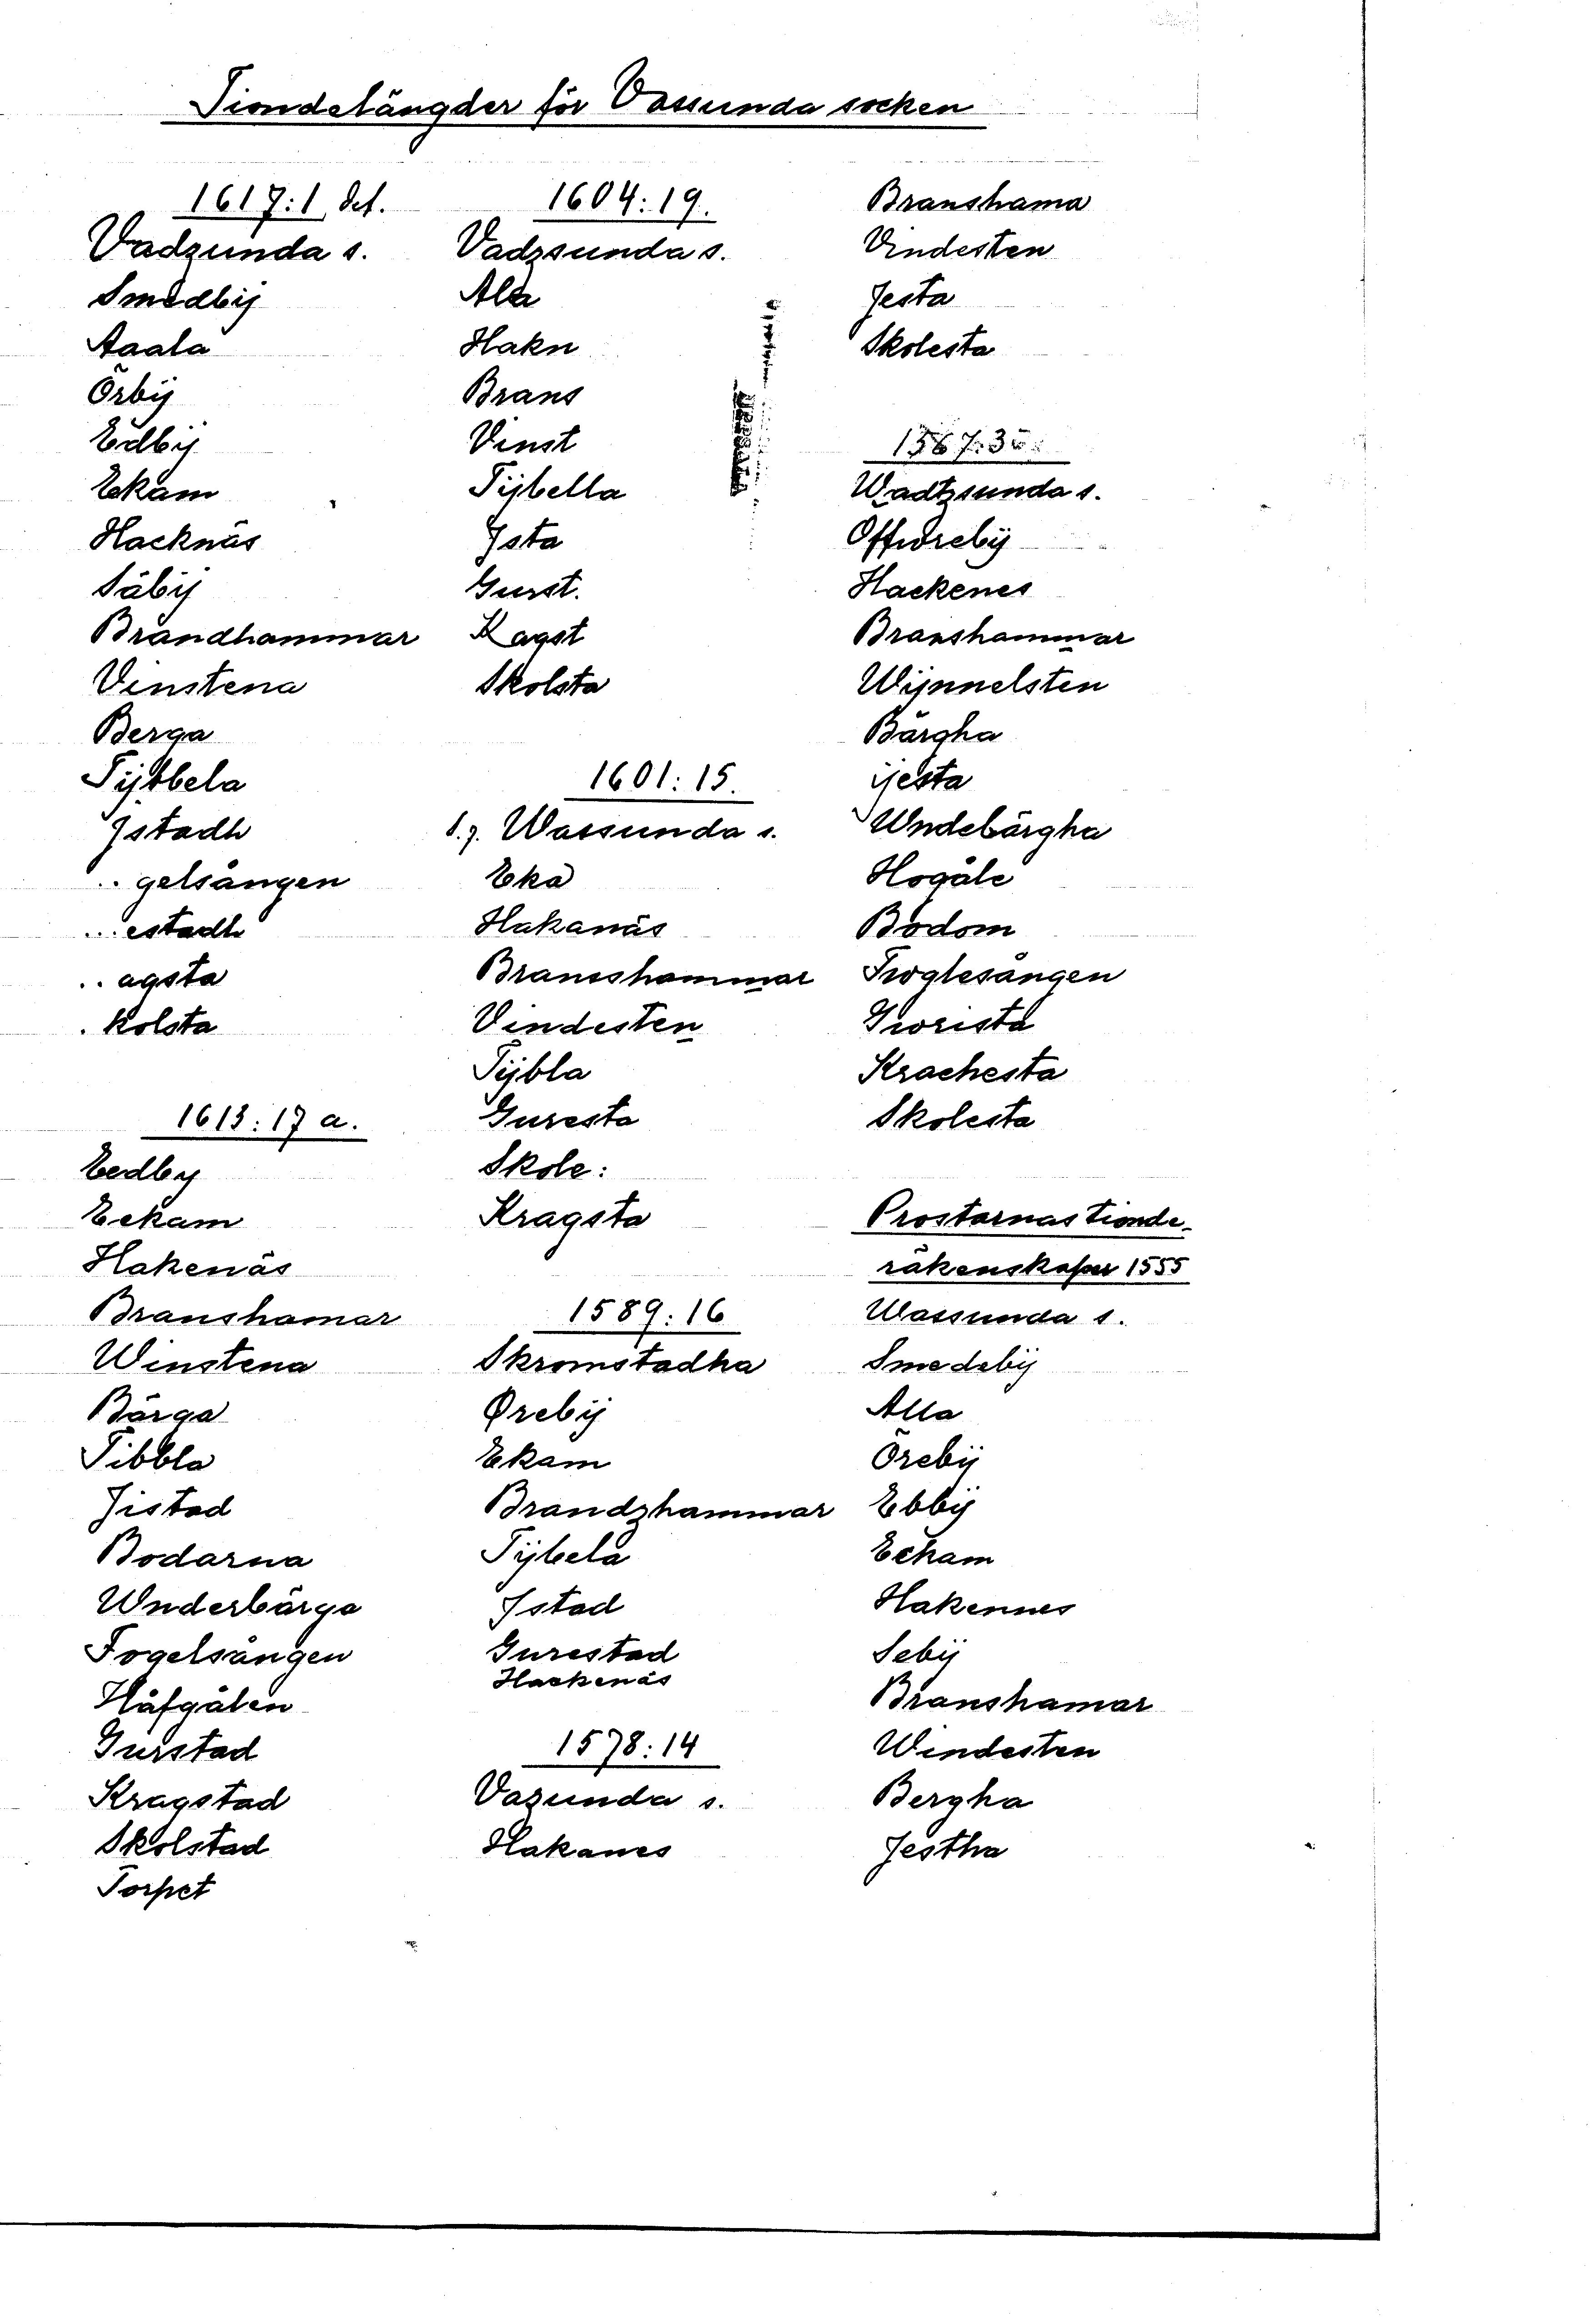 Tiondelängder för Vassunda socken
1617:1, def.
Vadzunda s.
Smedbij
Aaala
Örbij
Edbij
Ekam
Hacknäs
Säbij
Brandhammar
Vinstena
Berga
Tijbbela
Jstadh
.. gelsången
... estadh
.. agsta
. kolsta
1613:17 a.
Eedby
Eekam
Hakenäs
Branshamar
Winstena
Bärga
Tibbla
Jistad
Bodarna
Wnderbärga
Fogelsången
Håfgålen
Gurstad
Kragstad
Skolstad
Torpet
1604:19.
Vadzsunda s.
Ala
Hakn
Brans
Vinst
Tijbella
Jsta
Gurst.
Kagst
Skolsta
1601:15.
Wassunda s.
Eka
Hakanäs
Bransshammar
Vindesten
Tijbla
Guresta
Skole:
Kragsta
1589:16
Skromstadha
Ørebij
Ekam
Brandzhammar
Tijbela
Jstad
Gurestad
Hackenäs
1578:14
Vazunda s.
Hakanes
Branshama
Vindesten
Jesta
Skolesta
1567:35.
Wadtzsunda s.
Offwrebij
Hackenes
Branshammar
Wijnnelsten
Bärgha
ijesta
Wndebärgha
Hogåle
Bodom
Fwglesången
Gworista
Krachesta
Skolesta
Prostarnas tionde-
räkenskaper 1555
Wassunda s.
Smedebij
Alla
Örebij
Ebbij
Echam
Hakennes
Sebij
Branshamar
Windesten
Bergha
Jestha